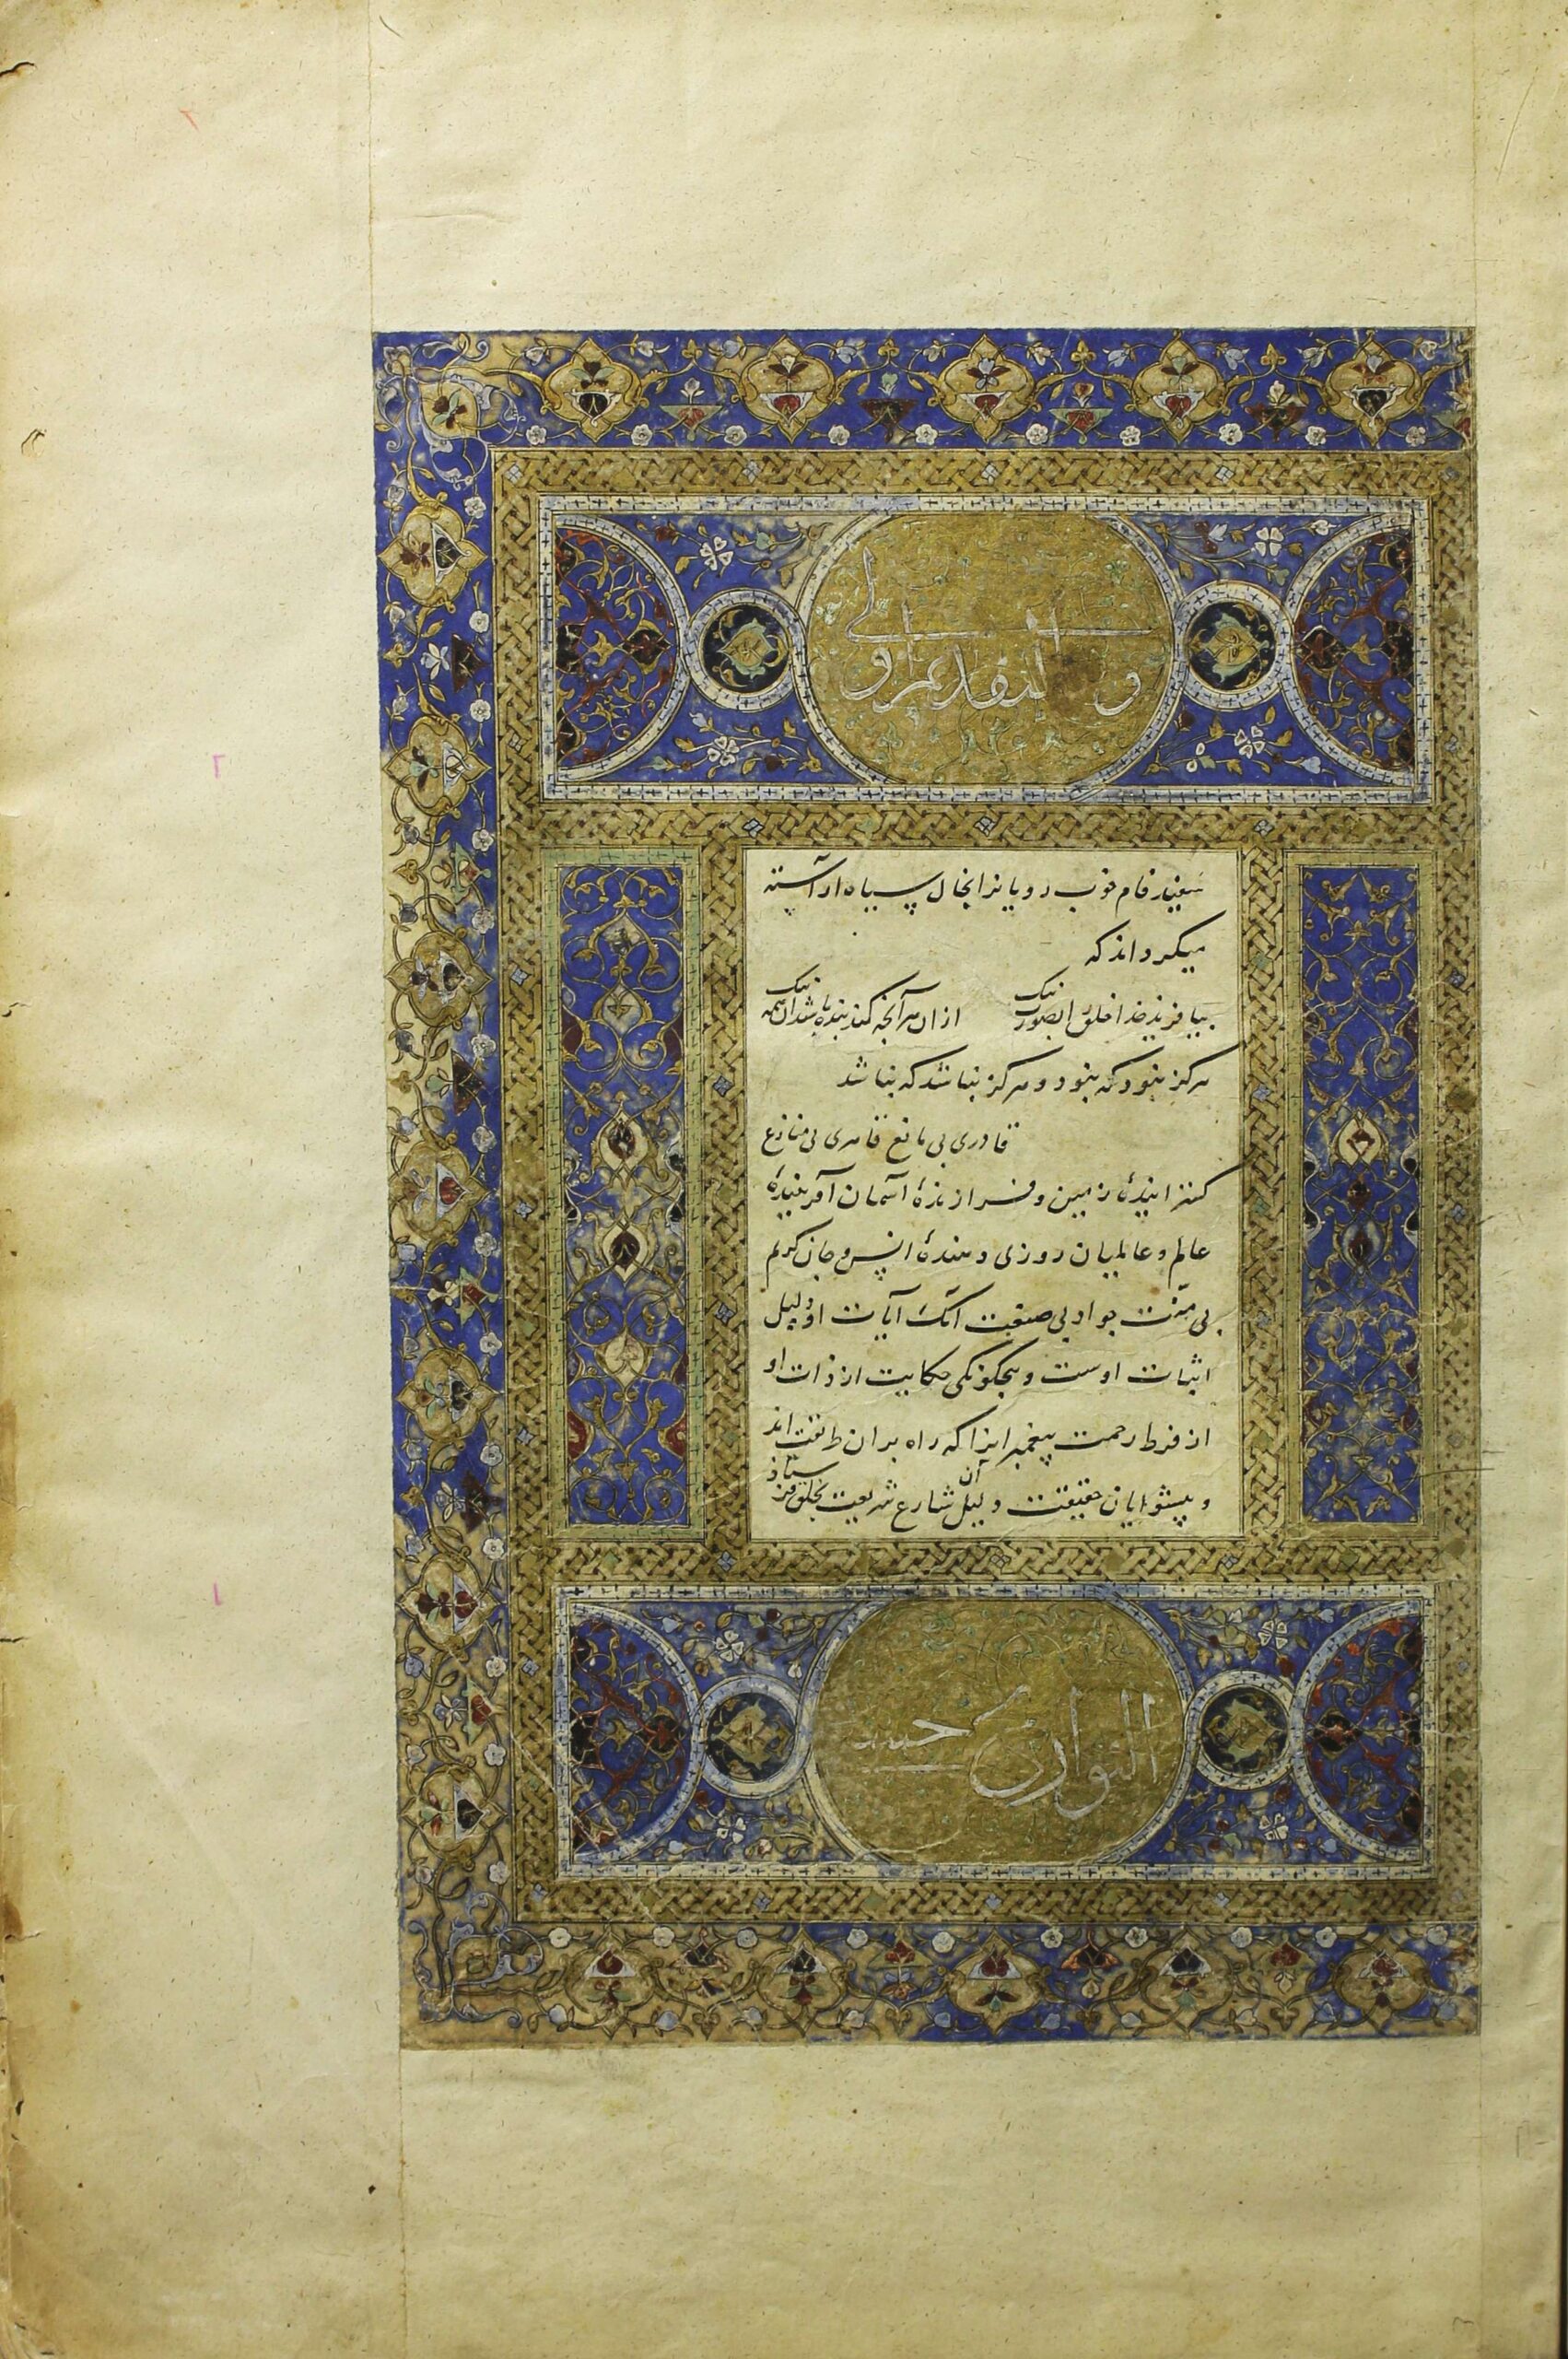 سفیدرقام خوب رویانرا بخال سیاه آراسته
میگرداند که
بیافریند خدا خلق را بصورت نیک
ازان هر آنچه کند بنده باشد آن همه نیک
هرگز نبود که نبود و هرگز نباشد که نباشد
قادری بی مانع قاهری بی منازع
گسترانیدهٔ زمین و فرازندهٔ آسمان آفرینندهٔ
عالم و عالمیان روزی دهندهٔ انس و جان کریم
بی منّت جواد بی آنک آیات او دلیل
اثبات اوست و بیچگونگی حکایت از ذات او
از فرط رحمت پیغمبرانرا که راه بران طریقت اند
و پیشوایان حقیقت و دلیل آن شارع شریعت بخلق فرستاد
التواریخ